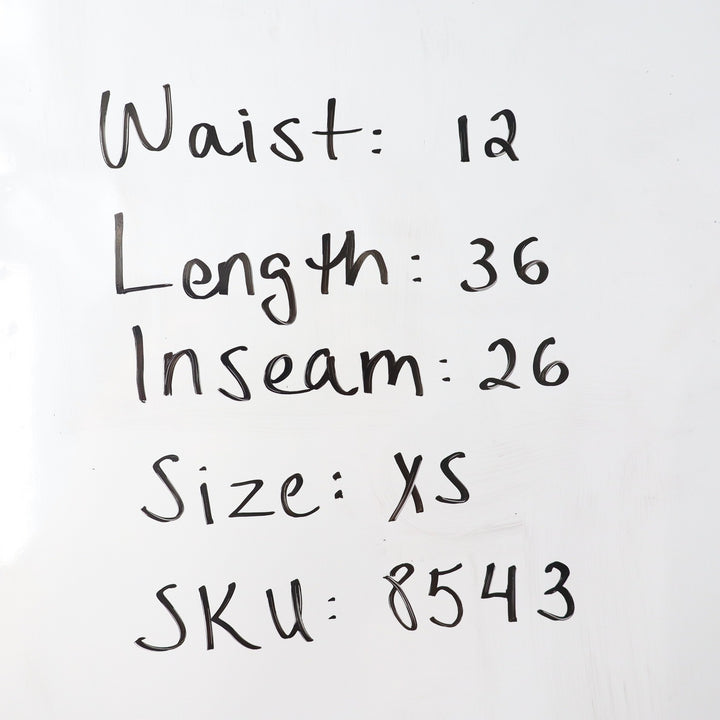 Waist: 12
Length: 36
Inseam: 26
Size: XS
SKU: 8543